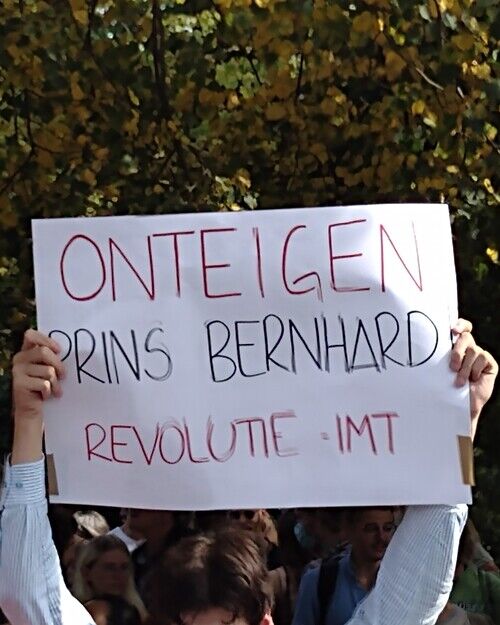 ONTEIGEN
PRINS BERNHARD
REVOLUTIE - IMT